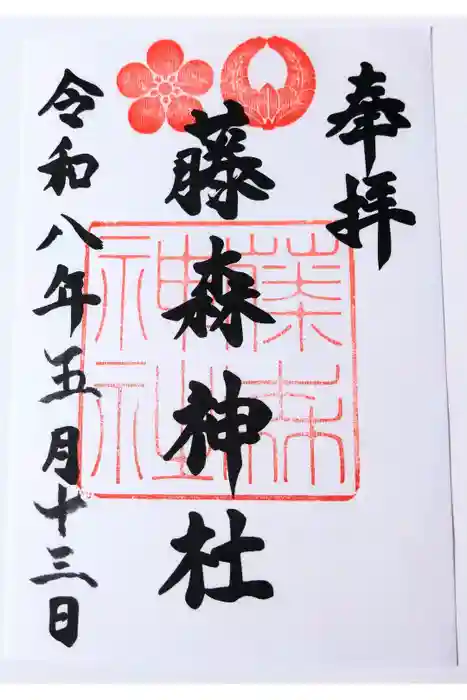 奉拝
藤森神社
令和八年五月十三日
藤森
神社